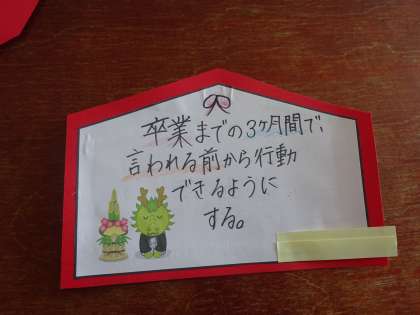 卒業までの3ヶ月間で、
言われる前から行動
できるように
する。